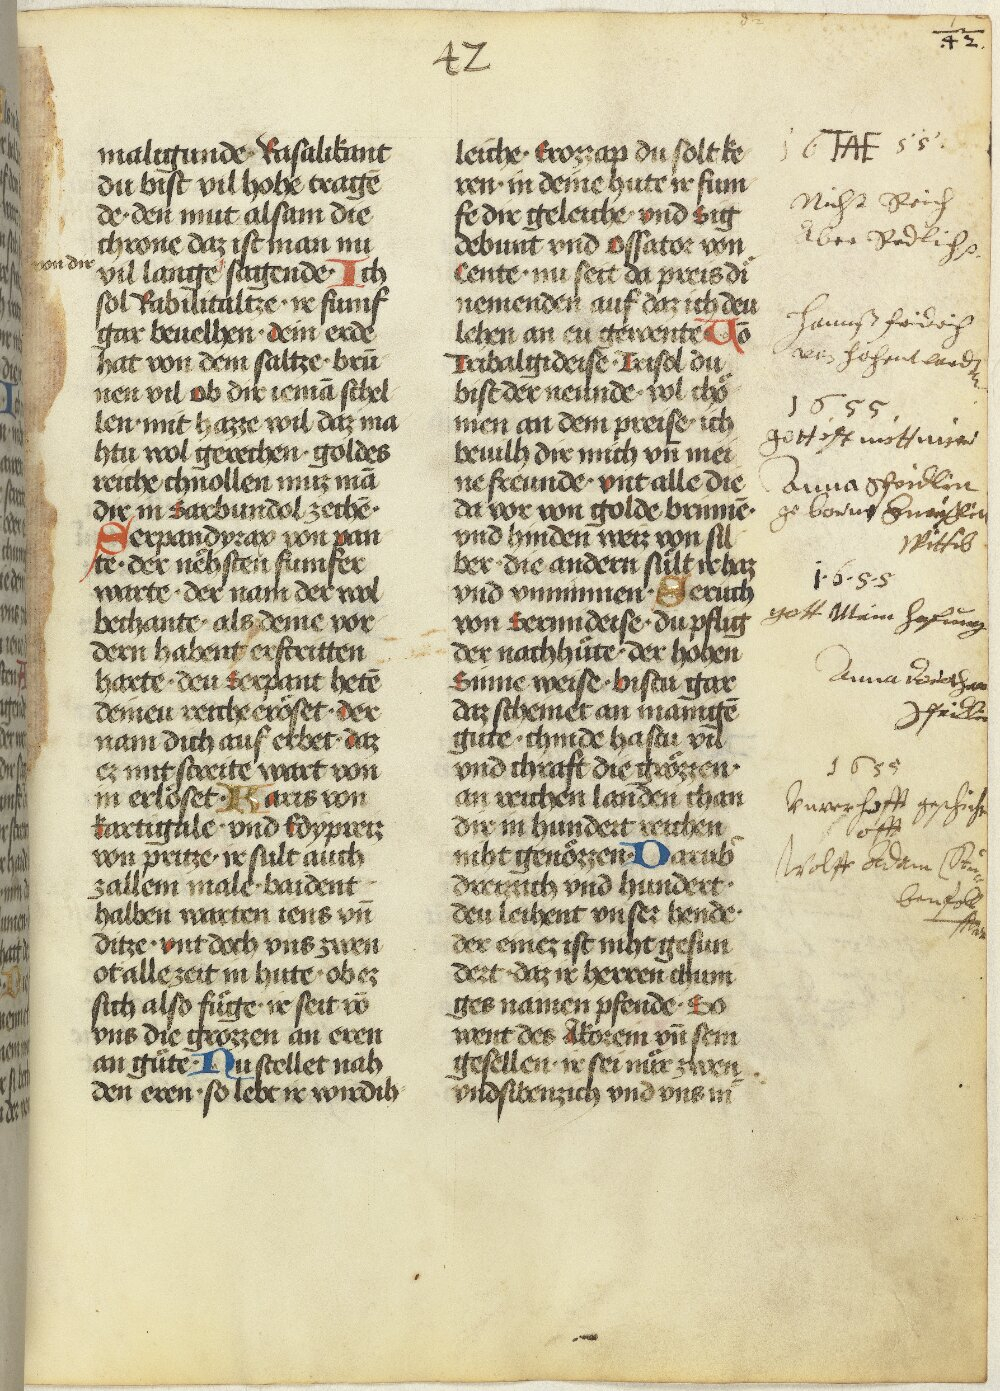 42
42.
maligunde · Rasalikant
du bist vil hohe tragē
de · den mut alsam die
chrone daz ist man nu
von dir
vil lange sagende · Ich
sol Rabilitaltze · ir funf
gar beuelhen · dem erde
hat von dem saltze · brū
nen vil · ob dir iemā schel
len · mit hazze wil daz ma
htu wol gerechen · goldes
reiche chnollen muz mā
dir in Sarbundol zechē ·
Serpandyrax von van
te · der nehsten funfer
warte · der nam der wol
bechante · als deine vor
dern habent erstritten
harte · den Serpant hetē
deineu reiche eröset · der
nam dich auf erbet · daz
ez mit streite wart von
in erlöset · Karis von
Kartigale · vnd Edypreiz
von pritze · ir sult auch
zallem male · baident
halben warten iens vn̄
ditze · vnt doch vns zwen
ot alle zeit in hute · ob ez
sich also füge · ir seit vō
vns die grozzen an eren
an güte · Nu stellet nah
den eren · so lebt ir wirdih
leiche · Crozzap du solt ke
ren · in deine hute ir fum
fe dir geleiche · vnd Sig
debunt vnd Ossator von
Cente · nu seit da preis di
nemenden auf daz ich deu
lehen an eu gerrente Vō
Tribalgideise · Trisol du
bist der neunde · wl chö
men an dem preise · ich
beuilh dir mich vn̄ mei
ne freunde · vnt alle die
da vor von golde brinnē ·
vnd hinden weiz von sil
ber · die andern sült ir haz
vnd vnminnen · Seruch
von Sernideise · du pflig
der nachhüte · der hohen
Sinne weise · bistu gar
daz scheinet an manigē
gute · chinde hastu vil
vnd chraft die grözzen ·
an reichen landen chan
dir in hundert reichen
niht genözzen · Darub
dreizzich vnd hundert ·
deu leihent vnser hende ·
der einez ist niht gesun
dert · daz ir herren chum
ges namen pfende · So
went des Akorein vn̄ sein
gesellen · ir sei nür zwen
vnd sibenzich vnd vns in
16 TAE 55 ·
Nicht Reich
Aber Redlich.
Hannß Fridrich
von Hohenl
1655.
gott ist mitt mir
Anna Sfeidlin
geborne
Wittib
1·6·55
gott Mein Hofnung
Anna Dorothea
Sfeidlin
1655
Vnverhofft geschicht
offt
Wolff Adam